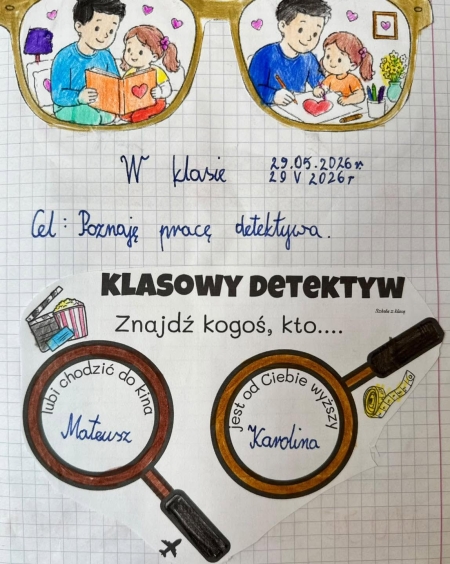 W klasie 29.05.2026r.
29 V 2026r
Cel: Poznaję pracę detektywa.
KLASOWY DETEKTYW
Szkoła z klasą
Znajdź kogoś, kto....
lubi chodzić do kina
Mateusz
jest od Ciebie wyższy
Karolina